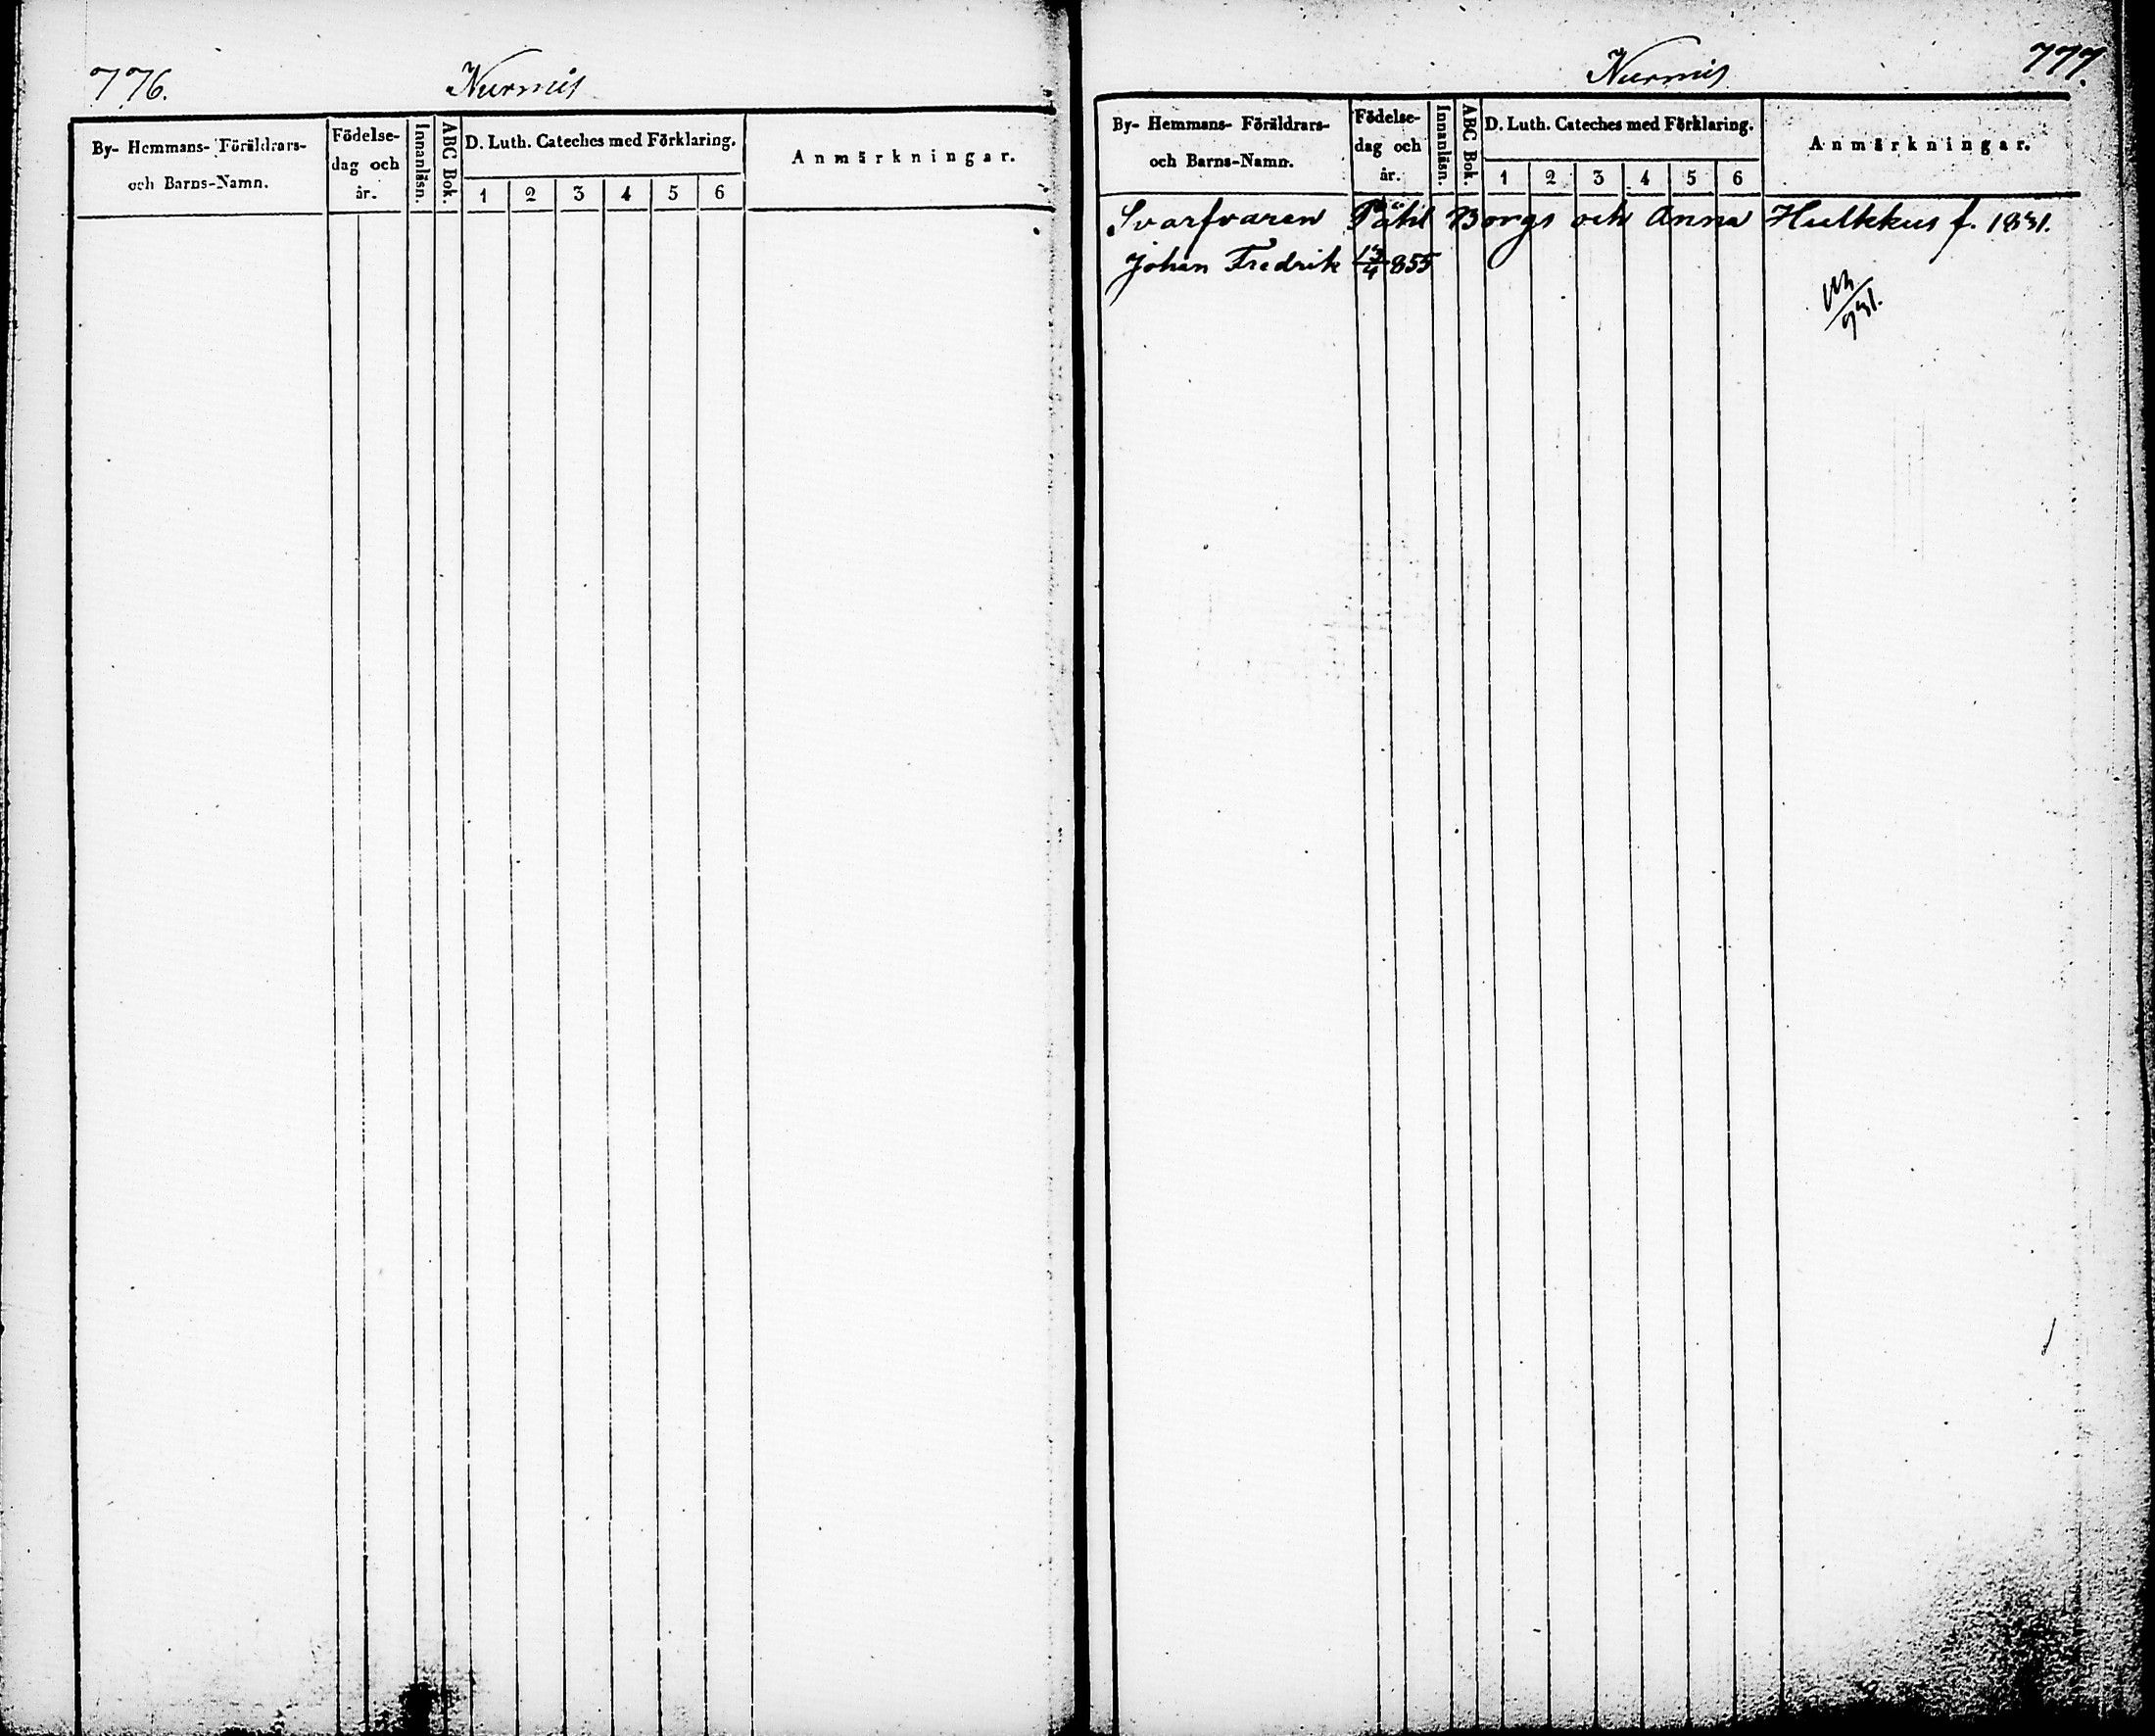 776.
Nurmis
By- Hemmans- Föräldrars-
och Barns-Namn.
Födelse-
dag och
år.
Innanläsn.
ABC Bok.
D. Luth. Cateches med Förklaring.
1 2 3 4 5 6
Anmärkningar.
777.
Nurmis
By- Hemmans- Föräldrars-
och Barns-Namn.
Födelse-
dag och
år.
Innanläsn.
ABC Bok.
D. Luth. Cateches med Förklaring.
1 2 3 4 5 6
Anmärkningar.
Svarfvaren Borgs och Anna Hulkkus f. 1831.
Johan Fredrik 855